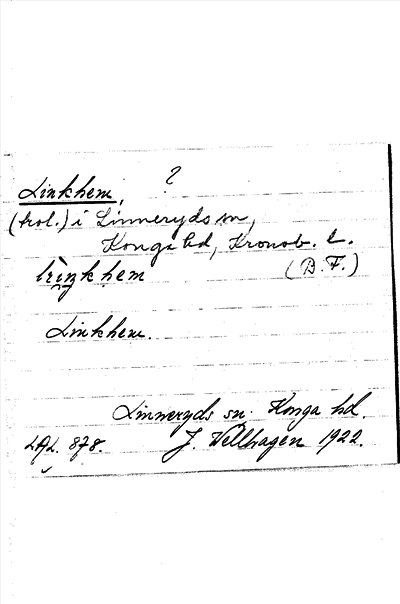 ?
Linkhem,
(trol.) i Linneryds sn,
Konga hd, Kronob. l.
(B. F.)
Linkhem.
Linneryds sn. Konga hd.
LAL. 878. J. Vellhagen 1922.